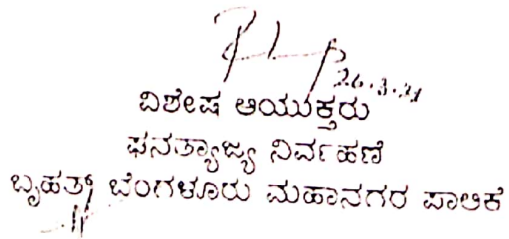 26.3.21
ವಿಶೇಷ ಆಯುಕ್ತರು
ಘನತ್ಯಾಜ್ಯ ನಿರ್ವಹಣೆ
ಬೃಹತ್ ಬೆಂಗಳೂರು ಮಹಾನಗರ ಪಾಲಿಕೆ